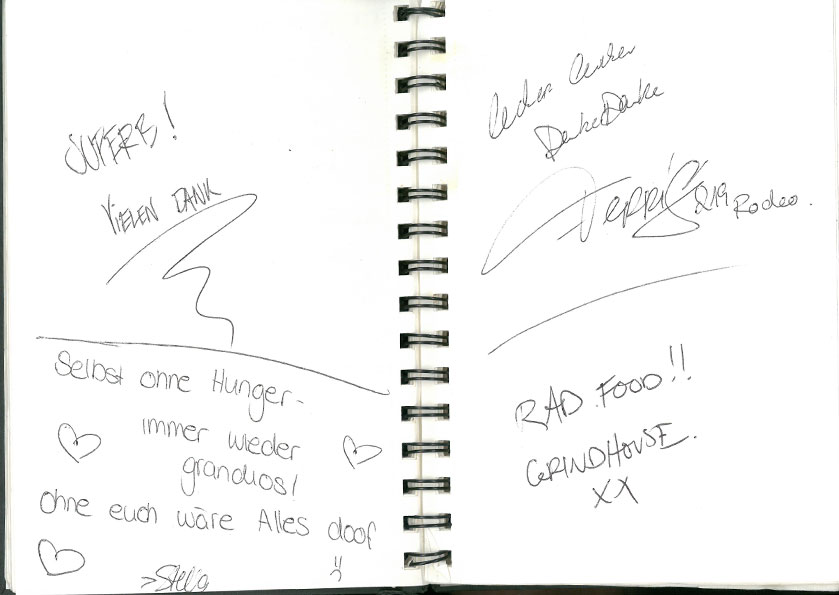 SUPERB!
VIELEN DANK
Selbst ohne Hunger-
immer wieder
grandios!
ohne euch wäre Alles doof
>Stella
Danke Danke
Rodeo.
RAD FOOD!!
GRINDHOUSE.
XX